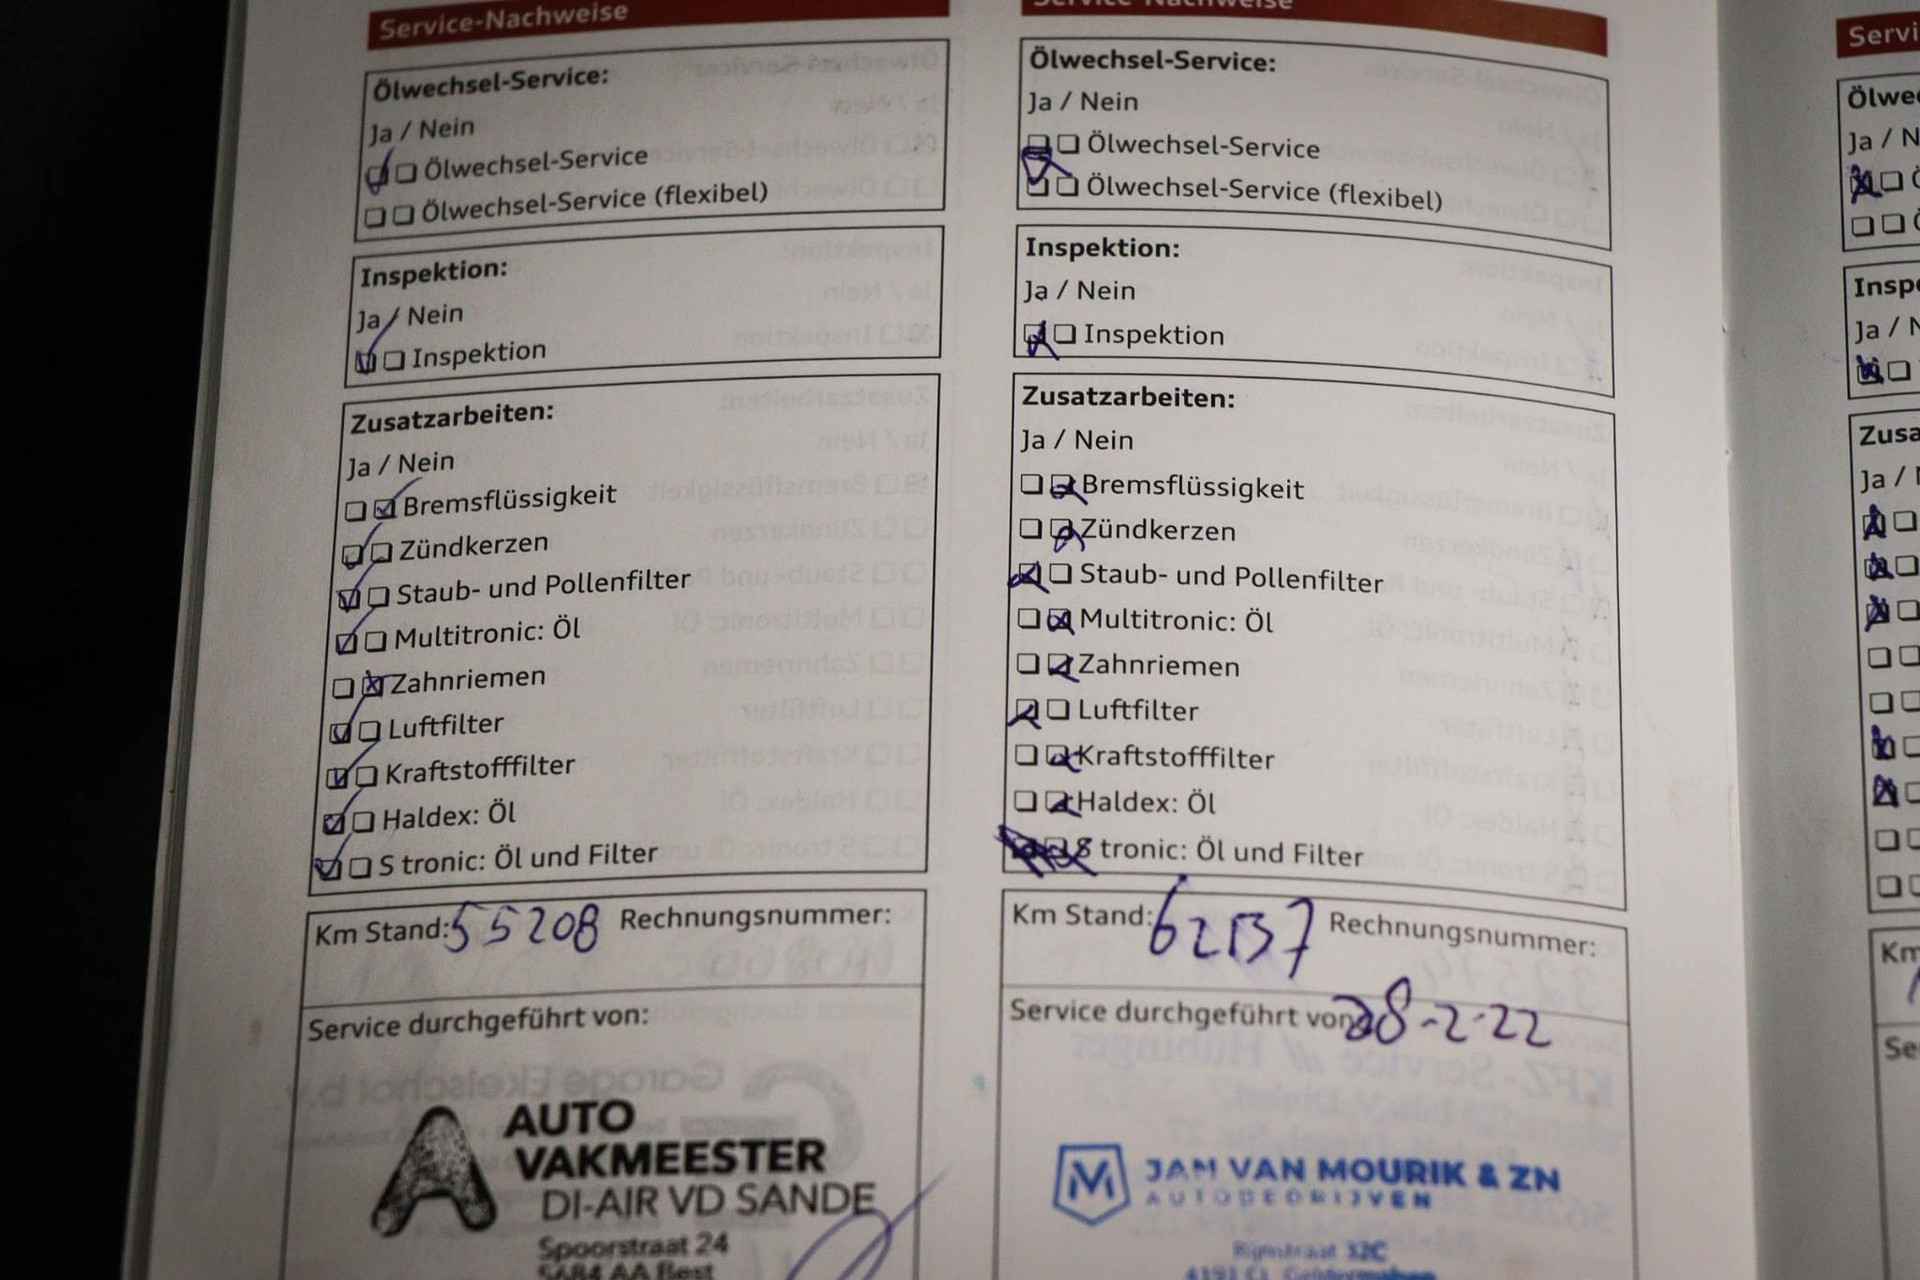 Service-Nachweise
Ölwechsel-Service:
Ja / Nein
Ölwechsel-Service
Ölwechsel-Service (flexibel)
Inspektion:
Ja / Nein
Inspektion
Zusatzarbeiten:
Ja / Nein
Bremsflüssigkeit
Zündkerzen
Staub- und Pollenfilter
Multitronic: Öl
Zahnriemen
Luftfilter
Kraftstofffilter
Haldex: Öl
S tronic: Öl und Filter
Km Stand: 55208 Rechnungsnummer:
Service durchgeführt von:
AUTO
VAKMEESTER
DI-AIR VD SANDE
Spoorstraat 24
5684 AA Best
Service-Nachweise
Ölwechsel-Service:
Ja / Nein
Ölwechsel-Service
Ölwechsel-Service (flexibel)
Inspektion:
Ja / Nein
Inspektion
Zusatzarbeiten:
Ja / Nein
Bremsflüssigkeit
Zündkerzen
Staub- und Pollenfilter
Multitronic: Öl
Zahnriemen
Luftfilter
Kraftstofffilter
Haldex: Öl
S tronic: Öl und Filter
Km Stand: 62137 Rechnungsnummer:
Service durchgeführt von 28-2-22
M JAN VAN MOURIK & ZN
AUTOBEDRIJVEN
32C
Servi
Ölwe
Ja / N
Ö
Ö
Inspe
Ja / N
Zusa
Ja / N
Km
Se